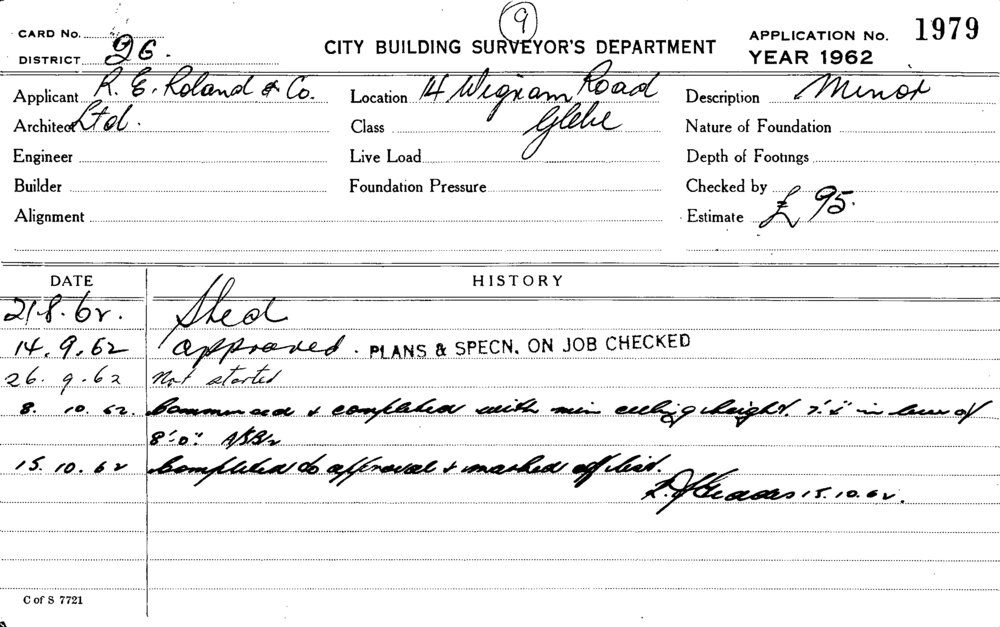 9
CARD No.
DISTRICT 26.
CITY BUILDING SURVEYOR'S DEPARTMENT
APPLICATION No. 1979
YEAR 1962
Applicant R. E. Roland & Co.
Location 14 Wigram Road
Description Minor
Architect Ltd.
Class Glebe
Nature of Foundation
Engineer
Live Load
Depth of Footings
Builder
Foundation Pressure
Checked by
Alignment
Estimate £95.
DATE HISTORY
21.8.62. Shed
14.9.62 approved. PLANS & SPECN. ON JOB CHECKED
26.9.62 Not started
8.10.62. Commenced & completed with min ceiling height. in lieu of
8'-0".
15.10.62 Completed to approval & marked off list.
15.10.62.
C of S 7721